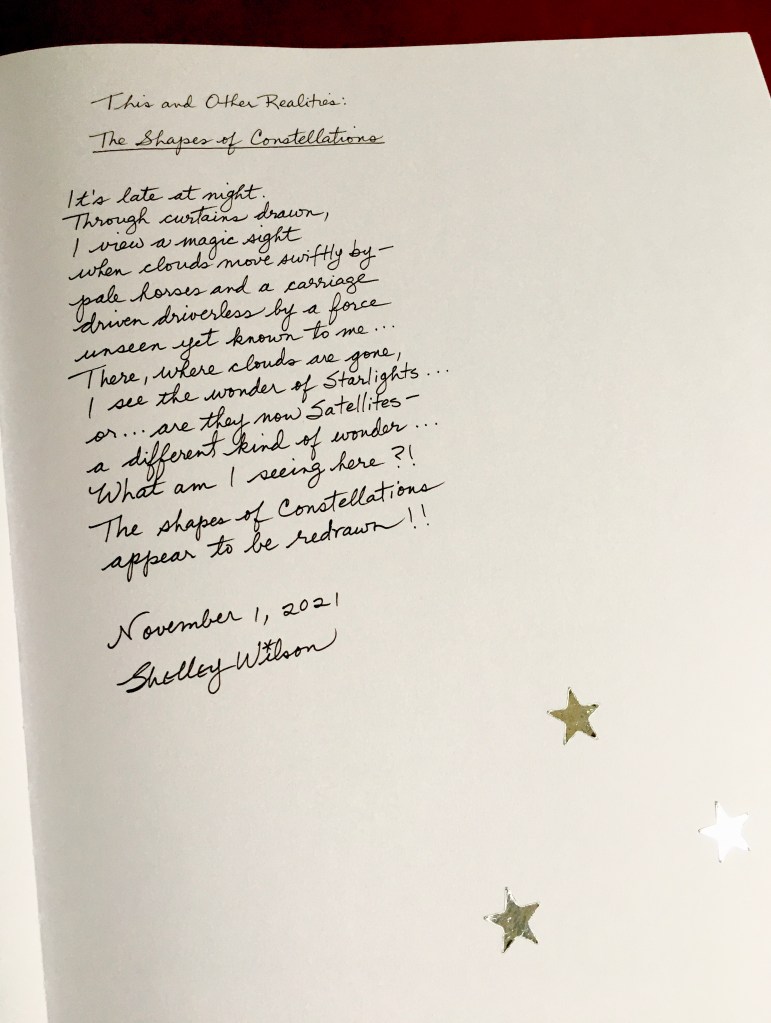 This and Other Realities:
The Shapes of Constellations
It's late at night.
Through curtains drawn,
I view a magic sight
when clouds move swiftly by—
pale horses and a carriage
driven driverless by a force
unseen yet known to me...
There, where clouds are gone,
I see the wonder of Starlights...
or... are they now Satellites—
a different kind of wonder...
What am I seeing here?!
The shapes of Constellations
appear to be redrawn!!
November 1, 2021
Shelley Wilson